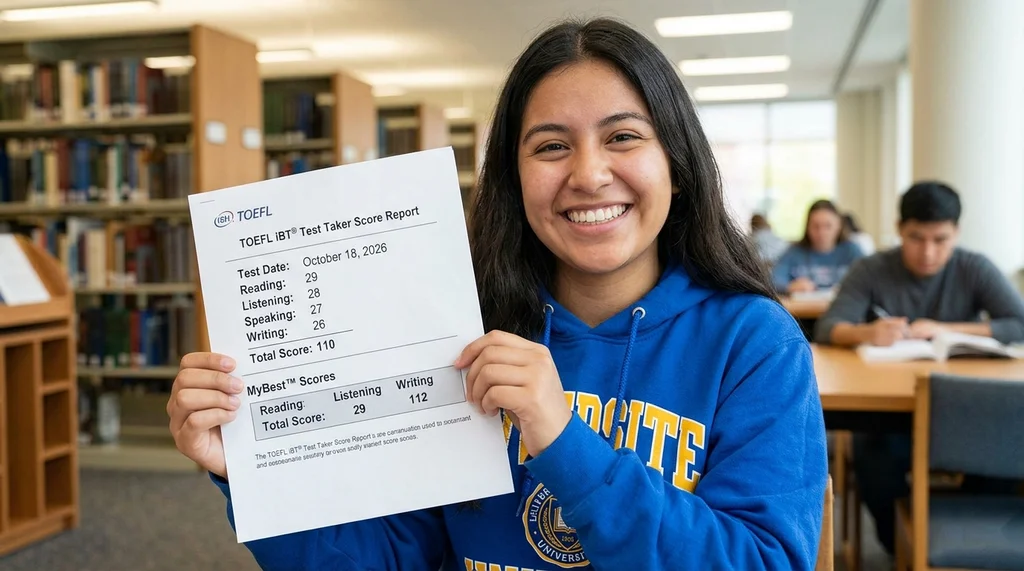 TOEFL
TOEFL iBT® Test Taker Score Report
Test Date: October 18, 2026
Reading: 29
Listening: 28
Speaking: 27
Writing: 26
Total Score: 110
MyBest™ Scores
Reading: Listening Writing
Total Score: 29 112
The TOEFL iBT® Test Taker Score Report is
and
ERSITE
UNIVERSI
1905